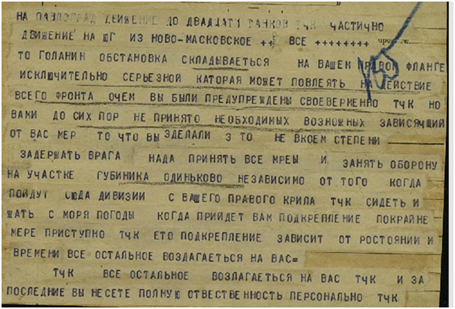 НА ПАВЛОГРАД ДВИЖЕНИЕ ДО ДВАДЦАТИ ТАНКОВ ТЧК ЧАСТИЧНО
ДВИЖЕНИЕ НА ЮГ ИЗ НОВО-МАСКОВСКОЕ ++ ВСЕ ++++++++
ТО ГОЛАНИН ОБСТАНОВКА СКЛАДЫВАЕТЬСЯ НА ВАШЕМ ПРАВОМ ФЛАНГЕ
ИСКЛЮЧИТЕЛЬНО СЕРЬЕЗНОЙ КАТОРАЯ МОЖЕТ ПОВЛЕЯТЬ НА ДЕЙСТВИЕ
ВСЕГО ФРОНТА ОЧЕМ ВЫ БЫЛИ ПРЕДУПРЕЖДЕНЫ СВОЕВЕРМЕННО ТЧК НО
ВАМИ ДО СИХ ПОР НЕ ПРИНЯТО НЕОБХОДИМЫХ ВОЗМОЖНЫХ ЗАВИСЯЧИЙ
ОТ ВАС МЕР ТО ЧТО ВЫ ЗДЕЛАЛИ З ТО НЕ ВКОЕМ СТЕПЕНИ
ЗАДЕРЖАТЬ ВРАГА НАДА ПРИНЯТЬ ВСЕ МРЕЫ И ЗАНЯТЬ ОБОРОНУ
НА УЧАСТКЕ ГУБИНИКА ОДИНЬКОВО НЕЗАВИСИМО ОТ ТОГО КОГДА
ПОЙДУТ СЮДА ДИВИЗИИ С ВАШЕГО ПРАВОГО КРИЛА ТЧК СИДЕТЬ И
ЩАТЬ С МОРЯ ПОГОДЫ КОГДА ПРИЙДЕТ ВАМ ПОДКРЕПЛЕНИЕ ПОКРАЙНЕ
МЕРЕ ПРИСТУПНО ТЧК ЕТО ПОДКРЕПЛЕНИЕ ЗАВИСИТ ОТ РОСТОЯНИИ И
ВРЕМЕНИ ВСЕ ОСТАЛЬНОЕ ВОЗДАГАЕТЬСЯ НА ВАС=
ТЧК ВСЕ ОСТАЛЬНОЕ ВОЗЛАГАЕТЬСЯ НА ВАС ТЧК И ЗА
ПОСЛЕДНИЕ ВЫ НЕСЕТЕ ПОЛНУЮ ОТВЕСТВЕННОСТЬ ПЕРСОНАЛЬНО ТЧК